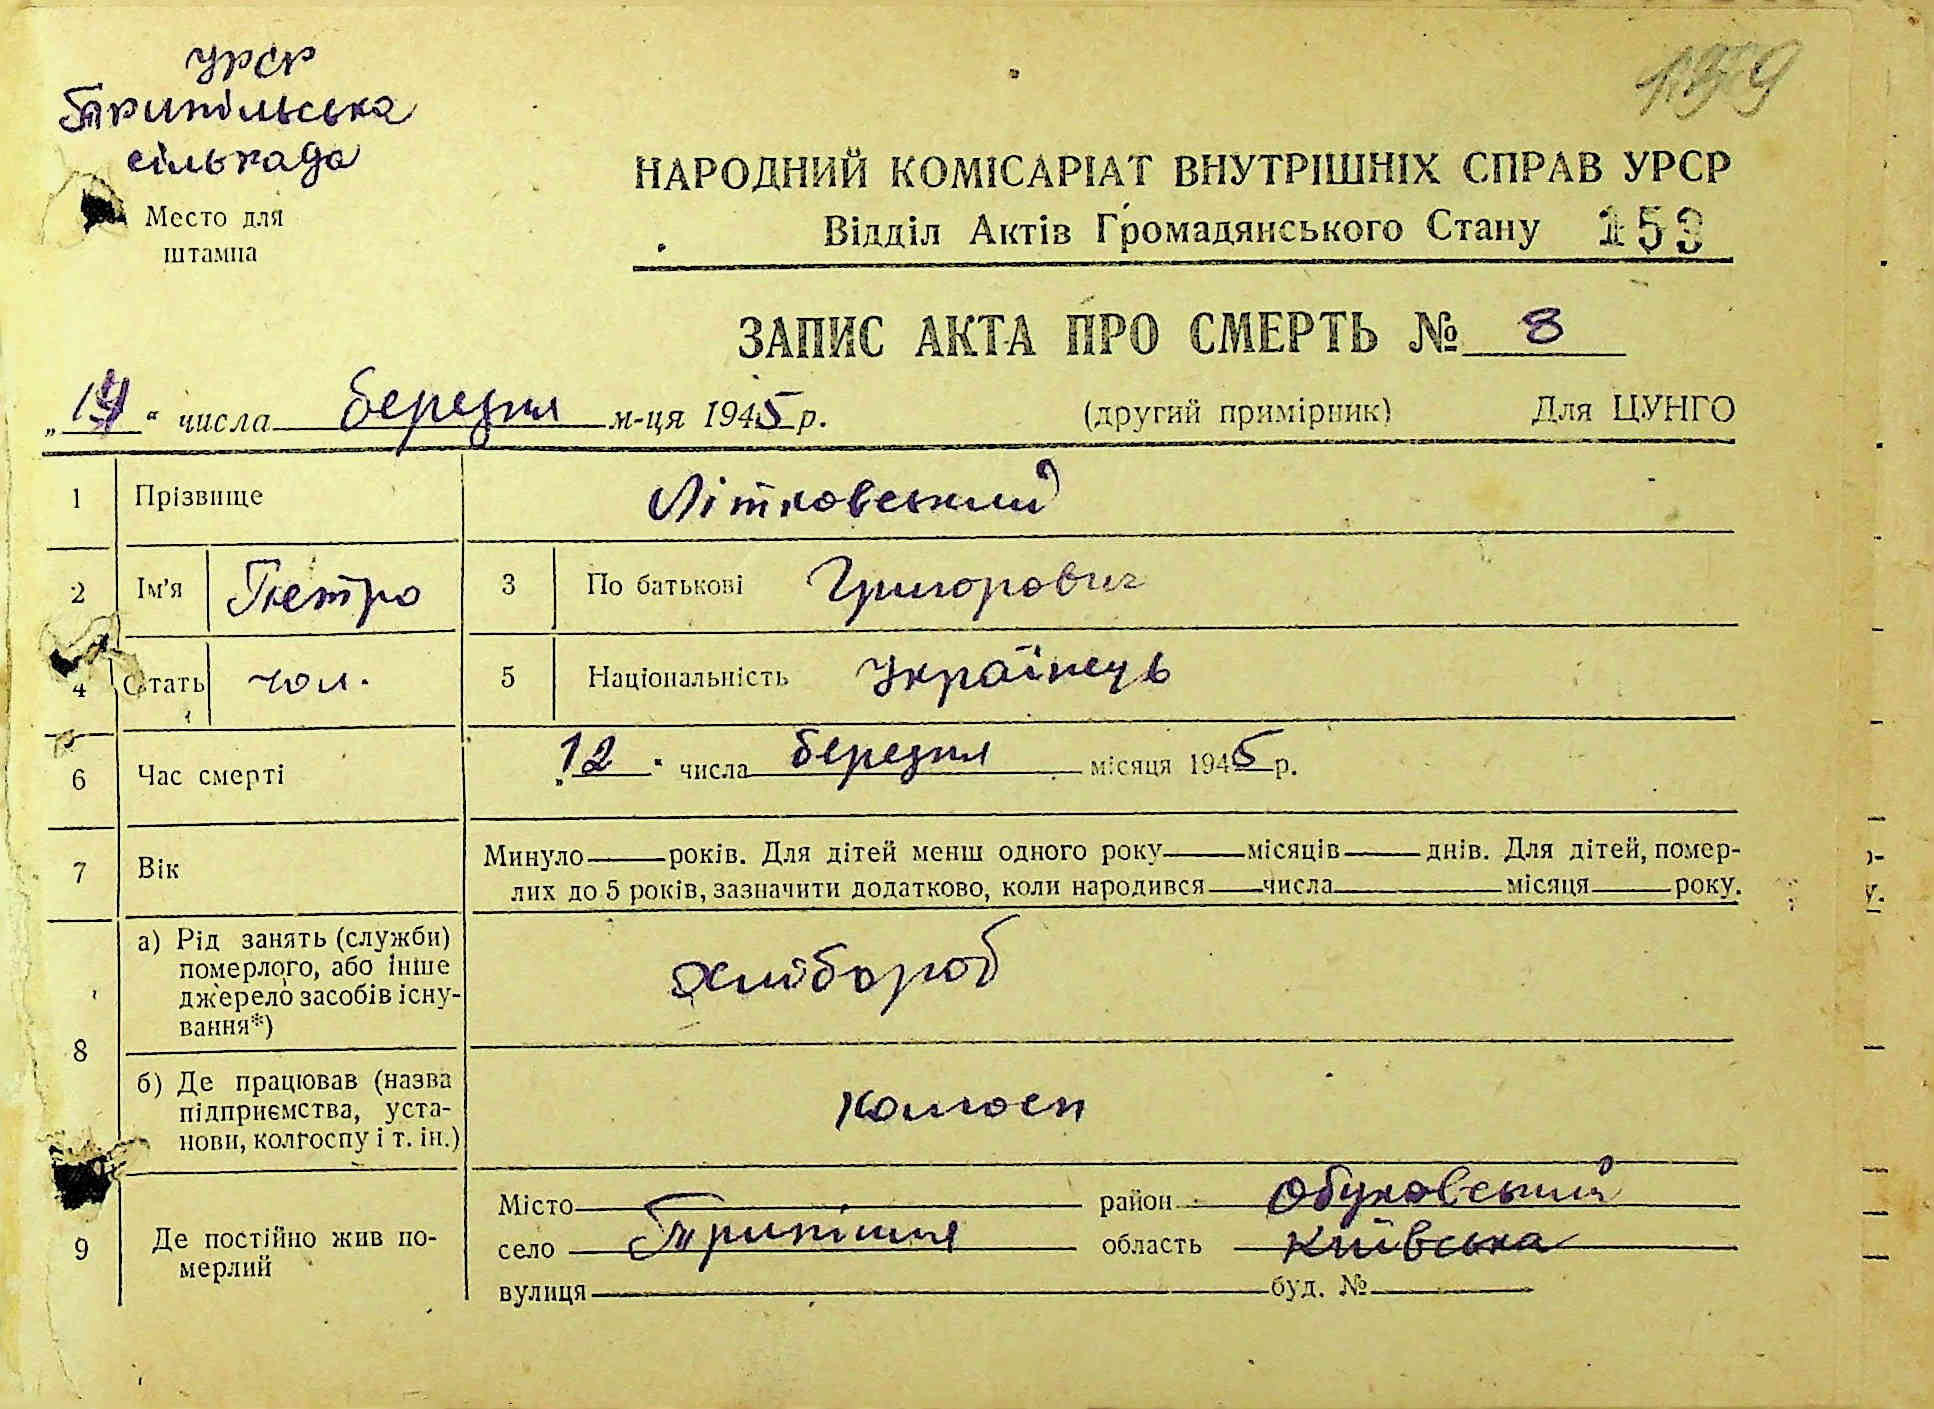 УРСР
Трипільська
сільрада
Место для
штампа
НАРОДНИЙ КОМІСАРІАТ ВНУТРІШНІХ СПРАВ УРСР
Відділ Актів Громадянського Стану 153
ЗАПИС АКТА ПРО СМЕРТЬ № 8
„14“ числа березня м-ця 1945 р. (другий примірник) Для ЦУНГО
1 Прізвище Літковський
2 Ім'я Петро 3 По батькові Григорович
4 Стать чол. 5 Національність Українець
6 Час смерті „12“ числа березня місяця 1945 р.
7 Вік Минуло років. Для дітей менш одного року місяців днів. Для дітей, помер-
лих до 5 років, зазначити додатково, коли народився числа місяця року.
8 а) Рід занять (служби)
померлого, або інше
джерело засобів існу-
вання*)
хлібороб
б) Де працював (назва
підприємства, уста-
нови, колгоспу і т. ін.)
колгосп
9 Де постійно жив по-
мерлий
Місто район Обуховський
село Трипілля область Київська
вулиця буд. №